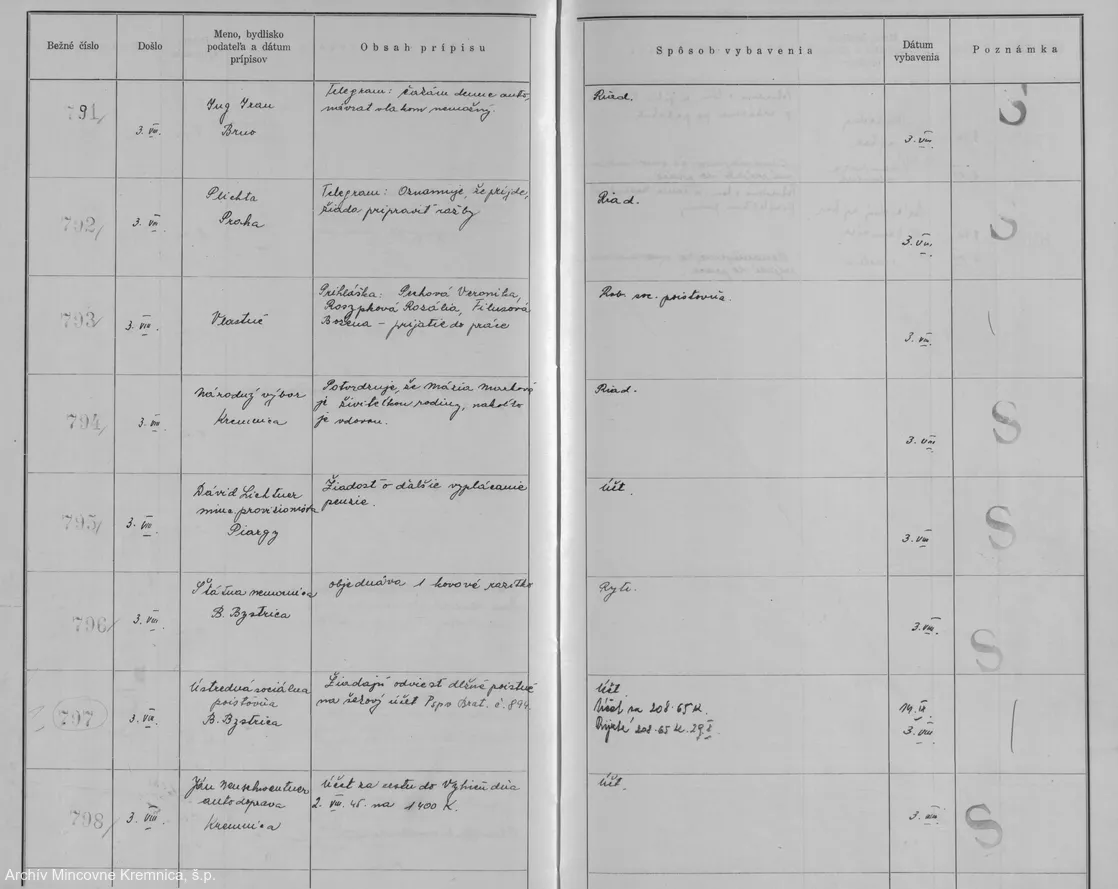 Bežné číslo
Došlo
Meno, bydlisko
podateľa a dátum
prípisov
Obsah prípisu
Spôsob vybavenia
Dátum
vybavenia
Poznámka
791/
3. VIII.
Ing Jean
Brno
Telegram: čakám denne auto,
návrat vlakom nemožný.
Riad.
3. VIII.
S
792/
3. VIII.
Plichta
Praha
Telegram: Oznamuje, že príjde,
žiada pripraviť ražby
Riad.
3. VIII.
S
793/
3. VIII.
Vlastné
Prihláška: Pechová Veronika,
Rosália, Filusová
Božena – prijatie do práce
Rob. soc. poisťovňa.
3. VIII.
794/
3. VIII.
Národný výbor
Kremnica
Potvrdzuje, že Mária Murková
je živiteľkou rodiny, nakoľko
je vdovou.
Riad.
3. VIII
S
795/
3. VIII.
Dávid Lichtner
minc. provizionista
Piargy
Žiadosť o ďalšie vyplácanie
penzie.
Účt.
3. VIII
S
796/
3. VIII.
Štátna nemocnica
B. Bystrica
objednáva 1 kovové razítko
Ryt.
3. VIII.
S
797
3. VIII.
Ústredná sociálna
poisťovňa
B. Bystrica
Žiadajú odviesť dlžné poistné
na šekový účet Pspo Brat. č. 894.
Účt
Účet na 208.65 K.
208.65 K. 29.X.
19. IX.
3. VIII
798/
3. VIII.
Ján
autodoprava
Kremnica
Účet za cestu do Vyhieň dňa
2. VIII. 45. na 1400 K.
Účt.
3. VIII.
S
Archív Mincovne Kremnica, š.p.